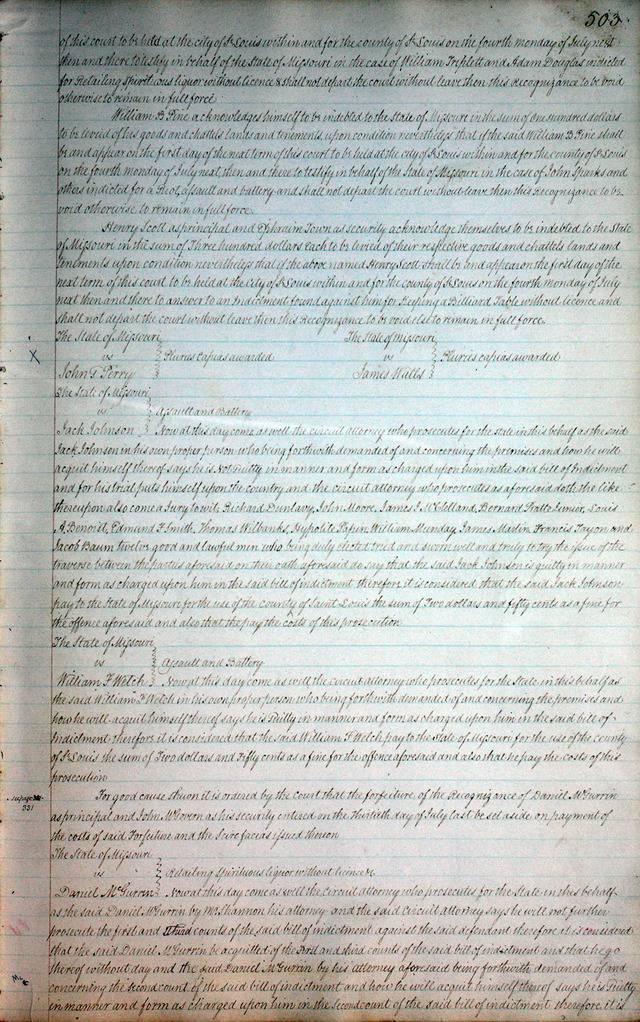 503
of this court to be held at the city of St Louis within and for the county of St Louis on the fourth monday of July next
then and there to testify in behalf of the State of Missouri in the case of William Triplett and Adam Douglas indicted
for Retailing Spirittious liquor without licence & shall not depart the court without leave then this Recognizance to be void
otherwise to remain in full force
William B Pine acknowledges himself to be indebted to the State of Missouri in the sum of one hundred dollars
to be levied of his goods and chattels lands and tenements, upon condition nevertheless that if the said William B Pine shall
be and appear on the first day of the next term of this court to be held at the city of St Louis within and for the county of St Louis
on the fourth monday of July next then and there to testify in behalf of the State of Missouri in the case of John Sparks and
others indicted for a Riot, assault and battery and shall not depart the court without leave then this Recognizance to be
void otherwise to remain in full force.
Henry Scott as principal and Ephraim Town as security acknowledge themselves to be indebted to the State
of Missouri in the sum of Three hundred dollars Each to be levied of their respective goods and chattels lands and
tenements upon condition nevertheless that if the above named Henry Scott shall be and appear on the first day of the
next term of this court to be held at the city of St Louis within and for the county of St Louis on the fourth monday of July
next then and there to answer to an Indictment found against him for Keeping a Billiard Table without licence and
shall not depart the court without leave then this Recognizance to be void else to remain in full force.
The State of Missouri
vs Pluries capias awarded
John G Perry
The State of Missouri
vs Pluries capias awarded
James Wallis
X
The State of Missouri
vs Assault and Battery
Jack Johnson Now at this day come as well the circuit attorney who prosecutes for the state in this behalf as the said
Jack Johnson in his own proper person who being forthwith demanded of and concerning the premises and how he will
acquit himself thereof says he is Not Guilty in manner and form as charged upon him in the said bill of Indictment
and for his trial puts himself upon the country and the circuit attorney who prosecutes as aforesaid doth the like
thereupon also come a Jury to wit, Richard Dunlavy, John Moore, James J McClelland, Bernard Pratte Junior, Louis
A. Benoist, Edmund F Smith, Thomas Wilbanks, Hyppolite Papin, William Munday, James Martin, Francis Tayon and
Jacob Baum twelve good and lawful men, who being duly elected tried and sworn well and truly to try the issue of the
traverse between the parties aforesaid on their oath aforesaid do say that the said Jack Johnson is guilty in manner
and form as charged upon him in the said bill of indictment therefore it is considered that the said Jack Johnson
pay to the State of Missouri for the use of the county of Saint Louis the sum of Two dollars and fifty cents as a fine for
the offence aforesaid and also that he pay the costs of this prosecution
The State of Missouri
vs Assault and Battery
William F Welch Now at this day come as well the circuit attorney who prosecutes for the State in this behalf as
the said William F Welch in his own proper person who being forthwith demanded of and concerning the premises and
how he will acquit himself thereof says he is Guilty in manner and form as charged upon him in the said bill of
Indictment therefore it is considered that the said William F Welch pay to the State of Missouri for the use of the county
of St Louis the sum of Two dollars and Fifty cents as a fine for the offence aforesaid and also that he pay the costs of this
prosecution
331
For good cause shown it is ordered by the court that the forfeiture of the Recognizance of Daniel McGurrin
as principal and John McGovern as his security entered on the Thirtieth day of July last be set aside on payment of
the costs of said Forfeiture and the Scire facias issued thereon
The State of Missouri
vs Retailing Spirituous liquor without licence &c
Daniel McGurrin Now at this day come as well the Circuit attorney who prosecutes for the State in this behalf
as the said Daniel McGurrin by Mr Shannon his attorney and the said circuit attorney says he will not further
prosecute the first and third counts of the said bill of indictment against the said defendant therefore it is considered
that the said Daniel McGurrin be acquitted of the First and third counts of the said bill of indictment and that he go
thereof without day and the said Daniel McGurrin by his attorney aforesaid being forthwith demanded of and
concerning the second count of the said bill of indictment and how he will acquit himself thereof says he is Guilty
in manner and form as charged upon him in the second count of the said bill of indictment therefore it is